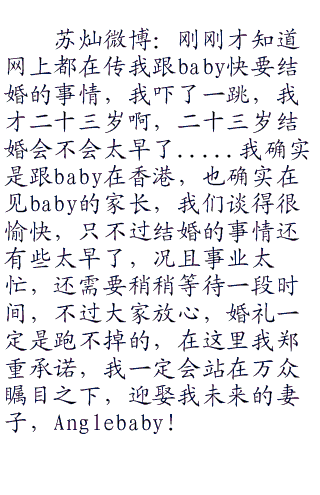 苏灿微博：刚刚才知道
网上都在传我跟baby快要结
婚的事情，我吓了一跳，我
才二十三岁啊，二十三岁结
婚会不会太早了.....我确实
是跟baby在香港，也确实在
见baby的家长，我们谈得很
愉快，只不过结婚的事情还
有些太早了，况且事业太
忙，还需要稍稍等待一段时
间，不过大家放心，婚礼一
定是跑不掉的，在这里我郑
重承诺，我一定会站在万众
瞩目之下，迎娶我未来的妻
子，Anglebaby！